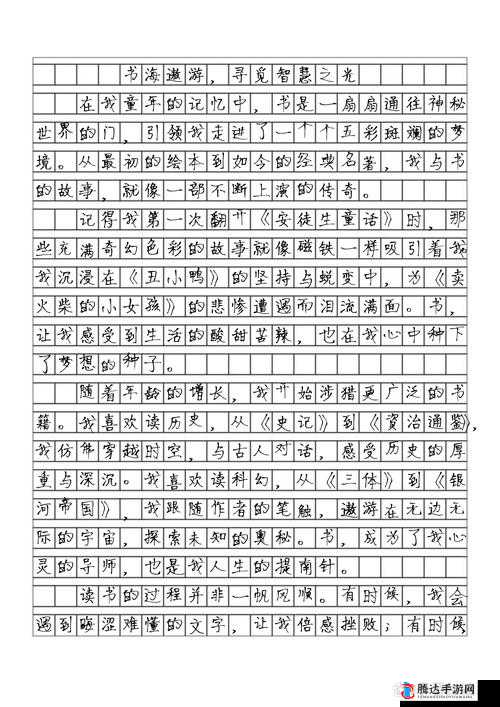 书海遨游，寻觅智慧之光
在我童年的记忆中，书是一扇扇通往神秘
世界的门，引领我走进了一个个五彩斑斓的梦
境。从最初的绘本到如今的经典名著，我与书
的故事，就像一部不断上演的传奇。
记得我第一次翻开《安徒生童话》时，那
些充满奇幻色彩的故事就像磁铁一样吸引着我
我沉浸在《丑小鸭》的坚持与蜕变中，为《卖
火柴的小女孩》的悲惨遭遇而泪流满面。书，
让我感受到生活的酸甜苦辣，也在我心中种下
了梦想的种子。
随着年龄的增长，我开始涉猎更广泛的书
籍。我喜欢读历史，从《史记》到《资治通鉴》，
我仿佛穿越时空，与古人对话，感受历史的厚
重与深沉。我喜欢读科幻，从《三体》到《银
河帝国》，我跟随作者的笔触，遨游在无边无
际的宇宙，探索未知的奥秘。书，成为了我心
灵的导师，也是我人生的指南针。
读书的过程并非一帆风顺。有时候，我会
遇到晦涩难懂的文字，让我倍感挫败；有时候
腾达手游网